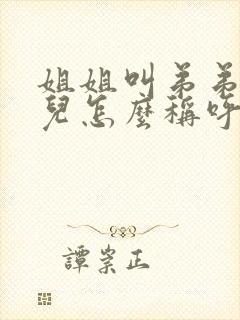 姐姐叫弟弟
兒怎麼稱呼
譚崇正